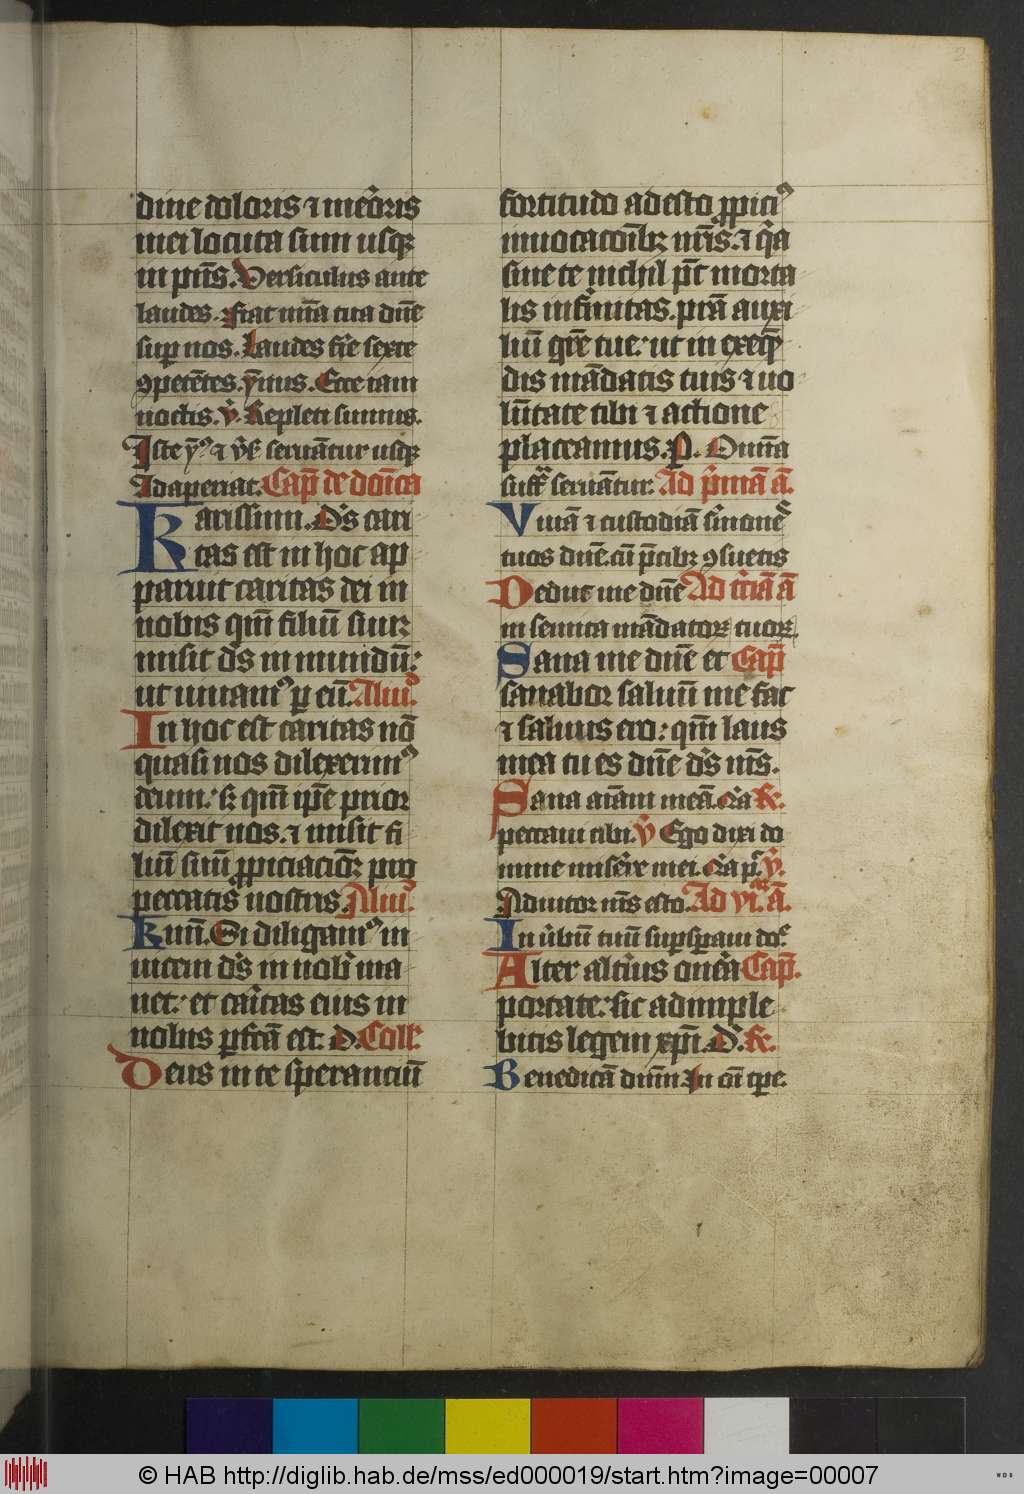 dine doloris ⁊ meꝛoris
mei locuta sum usqꝫ
in pn̄s. Versiculus ante
laudes. Fiat mīa tua dn̄e
sup nos. Laudes fr̄ie sexte
ꝯpetētes. ymnus. Ecce iam
noctis. v̓. Repleti sumus.
Iste yꝰ ⁊ v̓s. seruātur usqꝫ
Adaperiat. Cap̄ de dōica
Karissimi. Ds̄ cari
tas est in hoc ap
paruit caritas dei in
nobis qm̄ filiū suū
misit ds̄ in mundū:
ut uiuamꝰ p eū. Aliuꝰ.
In hoc est caritas nō
quasi nos dilexerimꝰ
deum: sꝫ qm̄ ip̄e prior
dilexit nos. ⁊ misit fi
liū suū ꝓpiciacōꝫ pro
peccatis nostris. Aliuꝰ.
Kmī. Si diligamꝰ in
uicem ds̄ in nobis ma
net: et car̄itas eius in
nobis pfc̄ā est. D. Coll.
Deus in te speranciū
fortitudo adesto ꝓpiciꝰ
inuocacōibꝫ nr̄is. ⁊ qꝛa
sine te nichil pōt morta
lis infirmitas. pr̄ā auxi
liū gr̄e tue: ut in exeqn̄
dis mādatis tuis ⁊ uo
lūtate tibi ⁊ actione
placeamus. P. Omīa
suffr̄ seruātur. Ad p̓mā ā.
Viuā ⁊ custodiā s̓monē
tuos dn̄e. cū p̄cibꝫ ꝯsuetis
Deduc me dn̄e Ad t̓ciā ā
in semita mādatoꝝ tuoꝝ.
Sana me dn̄e et Cap̄
sanabor saluū me fac
⁊ saluus ero: qm̄ laus
mea tu es dn̄e ds̄ ms̄.
Sana aīam meā. Qꝛa R̓.
peccaui tibi. v̓ Ego dixi do
mine miser̓e mei. Qꝛa pꝰ. v̓.
Adiutor ms̄ esto. Ad viͣ. ā.
In v̓bū tuū supsp̓aui do.
Alter alt̓ius oner̓a Cap̄.
portate: sic adimple
bitis legem xp̄i. D. R̓.
Benedicā dnm̄ In oī tp̄e.
2
© HAB http://diglib.hab.de/mss/ed000019/start.htm?image=00007